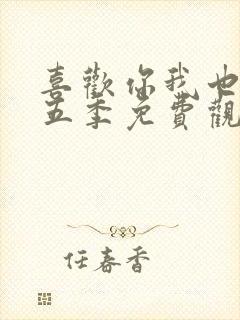 喜歡你我也
五季免費觀
任春香